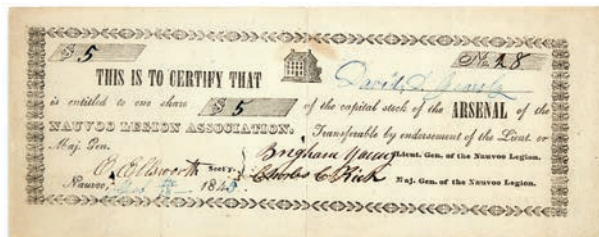 $ 5 No. 28
THIS IS TO CERTIFY THAT David D.
is entitled to one share $ 5 of the capital stock of the ARSENAL of the
NAUVOO LEGION ASSOCIATION. Transferable by endorsement of the Lieut. or
Maj. Gen.
Brigham Young Lieut. Gen. of the Nauvoo Legion.
B. Ellsworth Secry.
Charles C Rich Maj. Gen. of the Nauvoo Legion.
Nauvoo, 1845